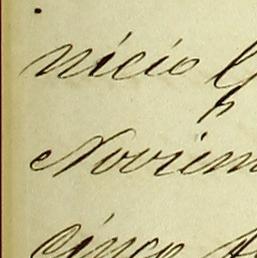 nicio
Noviem
cinco